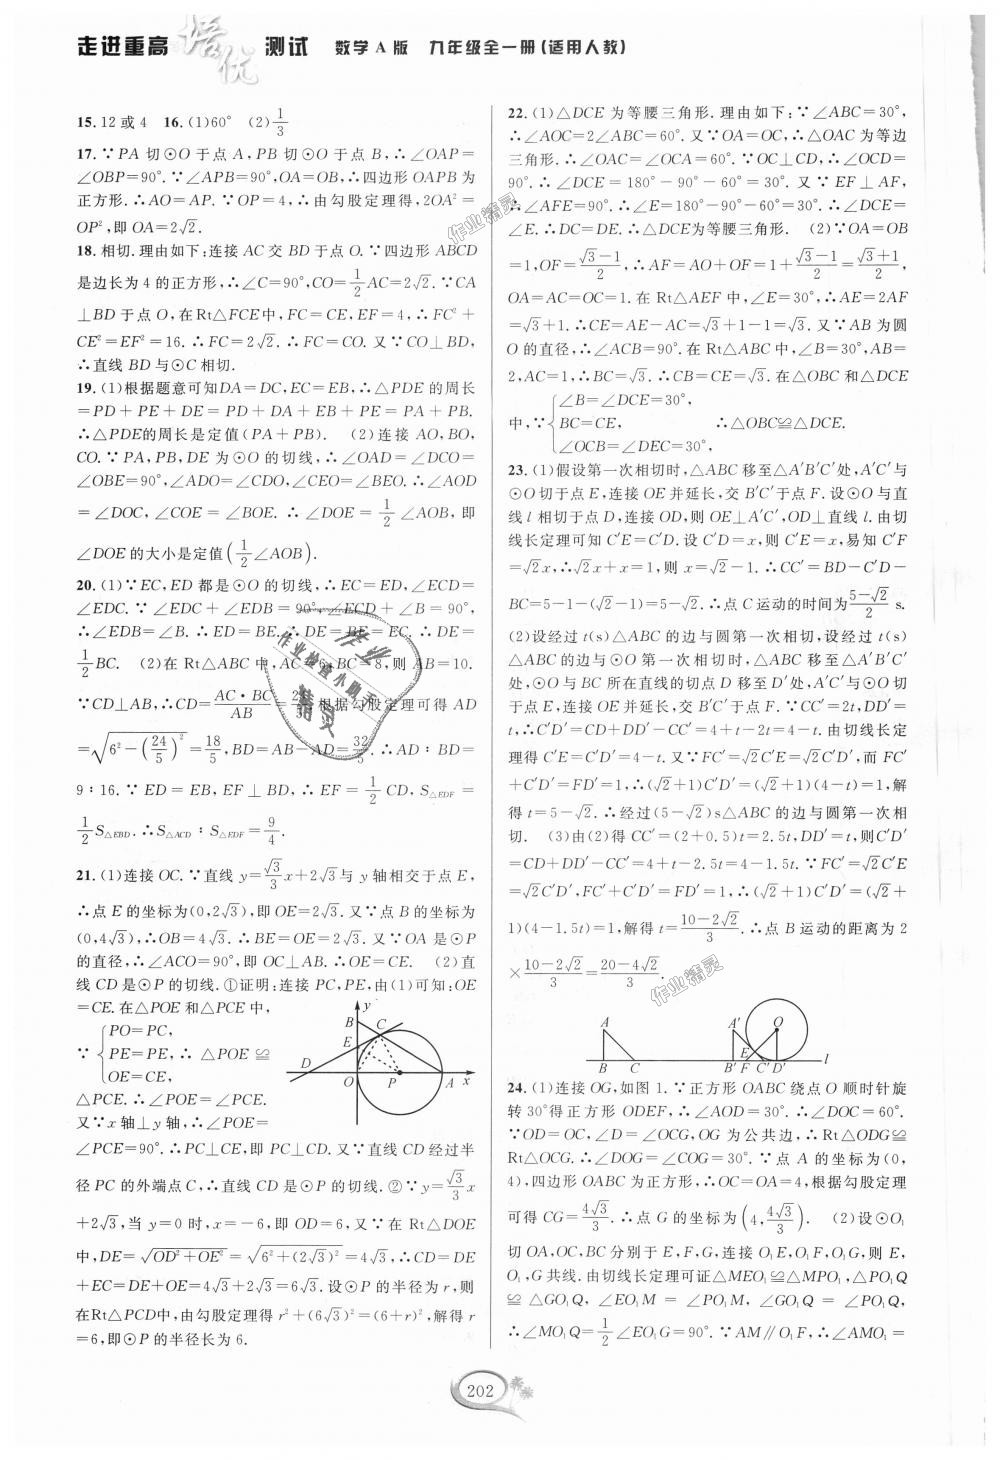 走进重高 培优 测试 数学 A 版 九年级全一册(适用人教)
15. 12 或 4 16. (1)60° (2)1/3
17. ∵PA 切⊙O 于点 A, PB 切⊙O 于点 B, ∴∠OAP=
∠OBP=90°. ∵∠APB=90°, OA=OB, ∴四边形 OAPB 为
正方形. ∴AO=AP. ∵OP=4, ∴由勾股定理得, 2OA²=
OP², 即 OA=2√2.
18. 相切. 理由如下: 连接 AC 交 BD 于点 O. ∵四边形 ABCD
是边长为 4 的正方形, ∴∠C=90°, CO=1/2AC=2√2. ∵CA
⊥BD 于点 O, 在Rt△FCE中, FC=CE, EF=4, ∴FC²+
CE²=EF²=16. ∴FC=2√2. ∴FC=CO. 又∵CO⊥BD,
∴直线 BD 与⊙C 相切.
19. (1)根据题意可知DA=DC, EC=EB, ∴△PDE 的周长
=PD+PE+DE=PD+DA+EB+PE=PA+PB.
∴△PDE的周长是定值(PA+PB). (2)连接 AO, BO,
CO. ∵PA, PB, DE 为⊙O 的切线, ∴∠OAD=∠DCO=
∠OBE=90°, ∠ADO=∠CDO, ∠CEO=∠BEO. ∴∠AOD
=∠DOC, ∠COE=∠BOE. ∴∠DOE=1/2∠AOB, 即
∠DOE 的大小是定值(1/2∠AOB).
20. (1)∵EC, ED 都是⊙O 的切线, ∴EC=ED, ∠ECD=
∠EDC. ∵∠EDC+∠EDB=90°, ∠ECD+∠B=90°,
∴∠EDB=∠B. ∴ED=BE. ∴DE=BE=EC. ∴DE=
1/2BC. (2)在 Rt△ABC 中, AC=6, BC=8, 则 AB=10.
∵CD⊥AB, ∴CD=AC·BC/AB=24/5. 根据勾股定理可得 AD
=√(6²-(24/5)²)=18/5, BD=AB-AD=32/5. ∴AD∶BD=
9∶16. ∵ED=EB, EF⊥BD, ∴EF=1/2CD, S△EDF=
1/2S△EBD. ∴S△ACD∶S△EDF=9/4.
21. (1)连接 OC. ∵直线 y=√3/3x+2√3与 y 轴相交于点 E,
∴点 E 的坐标为(0,2√3), 即 OE=2√3. 又∵点 B 的坐标为
(0,4√3), ∴OB=4√3. ∴BE=OE=2√3. 又∵OA 是⊙P
的直径, ∴∠ACO=90°, 即 OC⊥AB. ∴OE=CE. (2)直
线 CD 是⊙P 的切线. ①证明: 连接 PC, PE, 由(1)可知: OE
=CE. 在△POE 和△PCE 中,
∵ { PO=PC,
PE=PE, ∴△POE≌
OE=CE,
△PCE. ∴∠POE=∠PCE.
又∵x轴⊥y 轴, ∴∠POE=
∠PCE=90°. ∴PC⊥CE, 即 PC⊥CD. 又∵直线 CD 经过半
径 PC 的外端点 C, ∴直线 CD 是⊙P 的切线. ②∵y=√3/3x
+2√3, 当 y=0 时, x=-6, 即 OD=6, 又∵在 Rt△DOE
中, DE=√(OD²+OE²)=√(6²+(2√3)²)=4√3, ∴CD=DE
+EC=DE+OE=4√3+2√3=6√3. 设⊙P 的半径为 r, 则
在Rt△PCD中, 由勾股定理得 r²+(6√3)²=(6+r)², 解得 r
=6, 即⊙P 的半径长为 6.
y B C E D O P A x
22. (1)△DCE 为等腰三角形. 理由如下: ∵∠ABC=30°,
∴∠AOC=2∠ABC=60°. 又∵OA=OC, ∴△OAC 为等边
三角形. ∴∠OAC=∠OCA=60°. ∵OC⊥CD, ∴∠OCD=
90°. ∴∠DCE=180°-90°-60°=30°. 又∵EF⊥AF,
∴∠AFE=90°. ∴∠E=180°-90°-60°=30°. ∴∠DCE=
∠E. ∴DC=DE. ∴△DCE 为等腰三角形. (2)∵OA=OB
=1, OF=(√3-1)/2, ∴AF=AO+OF=1+(√3-1)/2=(√3+1)/2,
OA=AC=OC=1. 在 Rt△AEF 中, ∠E=30°, ∴AE=2AF
=√3+1. ∴CE=AE-AC=√3+1-1=√3. 又∵AB 为圆
O 的直径, ∴∠ACB=90°. 在 Rt△ABC 中, ∠B=30°, AB=
2, AC=1, ∴BC=√3. ∴CB=CE=√3. 在△OBC 和△DCE
中, ∵ { ∠B=∠DCE=30°,
BC=CE, ∴△OBC≌△DCE.
∠OCB=∠DEC=30°,
23. (1)假设第一次相切时, △ABC 移至△A′B′C′处, A′C′与
⊙O切于点 E, 连接 OE 并延长, 交 B′C′于点 F. 设⊙O 与直
线 l 相切于点 D, 连接 OD, 则 OE⊥A′C′, OD⊥直线 l. 由切
线长定理可知 C′E=C′D. 设 C′D=x, 则 C′E=x, 易知 C′F
=√2x, ∴√2x+x=1, 则 x=√2-1. ∴CC′=BD-C′D-
BC=5-1-(√2-1)=5-√2. ∴点 C 运动的时间为(5-√2)/2 s.
(2)设经过 t(s)△ABC 的边与圆第一次相切, 设经过 t(s)
△ABC 的边与⊙O 第一次相切时, △ABC 移至△A′B′C′
处, ⊙O 与 BC 所在直线的切点 D 移至 D′处, A′C′与⊙O 切
于点 E, 连接 OE 并延长, 交 B′C′于点 F. ∵CC′=2t, DD′=
t, ∴C′D′=CD+DD′-CC′=4+t-2t=4-t. 由切线长定
理得 C′E=C′D′=4-t. 又∵FC′=√2C′E=√2C′D′, 而 FC′
+C′D′=FD′=1, ∴(√2+1)C′D′=(√2+1)(4-t)=1, 解
得 t=5-√2. ∴经过(5-√2)s△ABC 的边与圆第一次相
切. (3)由(2)得 CC′=(2+0.5)t=2.5t, DD′=t, 则C′D′
=CD+DD′-CC′=4+t-2.5t=4-1.5t. ∵FC′=√2C′E
=√2C′D′, FC′+C′D′=FD′=1, ∴(√2+1)C′D′=(√2+
1)(4-1.5t)=1, 解得 t=(10-2√2)/3. ∴点 B 运动的距离为 2
×(10-2√2)/3=(20-4√2)/3.
A B C A′ O E B′ F C′ D′ l
24. (1)连接 OG, 如图 1. ∵正方形 OABC 绕点 O 顺时针旋
转 30°得正方形 ODEF, ∴∠AOD=30°. ∴∠DOC=60°.
∵OD=OC, ∠D=∠OCG, OG 为公共边, ∴Rt△ODG≌
Rt△OCG. ∴∠DOG=∠COG=30°. ∵点 A 的坐标为(0,
4), 四边形 OABC 为正方形, ∴OC=OA=4, 根据勾股定理
可得 CG=4√3/3. ∴点 G 的坐标为(4, 4√3/3). (2)设⊙O₁
切 OA, OC, BC 分别于 E, F, G, 连接 O₁E, O₁F, O₁G, 则 E,
O₁, G 共线. 由切线长定理可证△MEO₁≌△MPO₁, △PO₁Q
≌△GO₁Q, ∠EO₁M=∠PO₁M, ∠GO₁Q=∠PO₁Q,
∴∠MO₁Q=1/2∠EO₁G=90°. ∵AM∥O₁F, ∴∠AMO₁=
作业精灵
作业精灵
作业
作业检查小助手
精灵
202